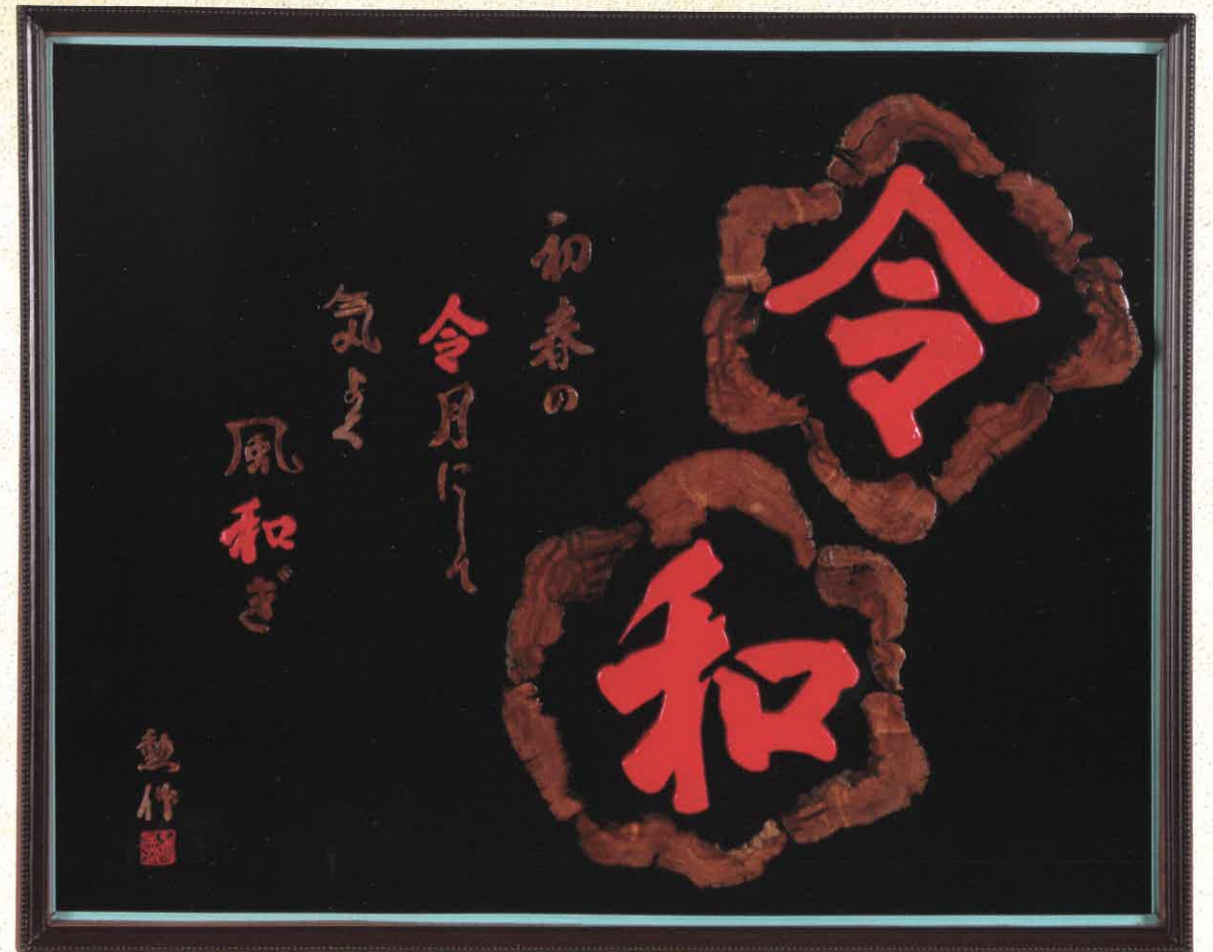 令
和
初春の
令月にして
気よく
風和ぎ
勲作